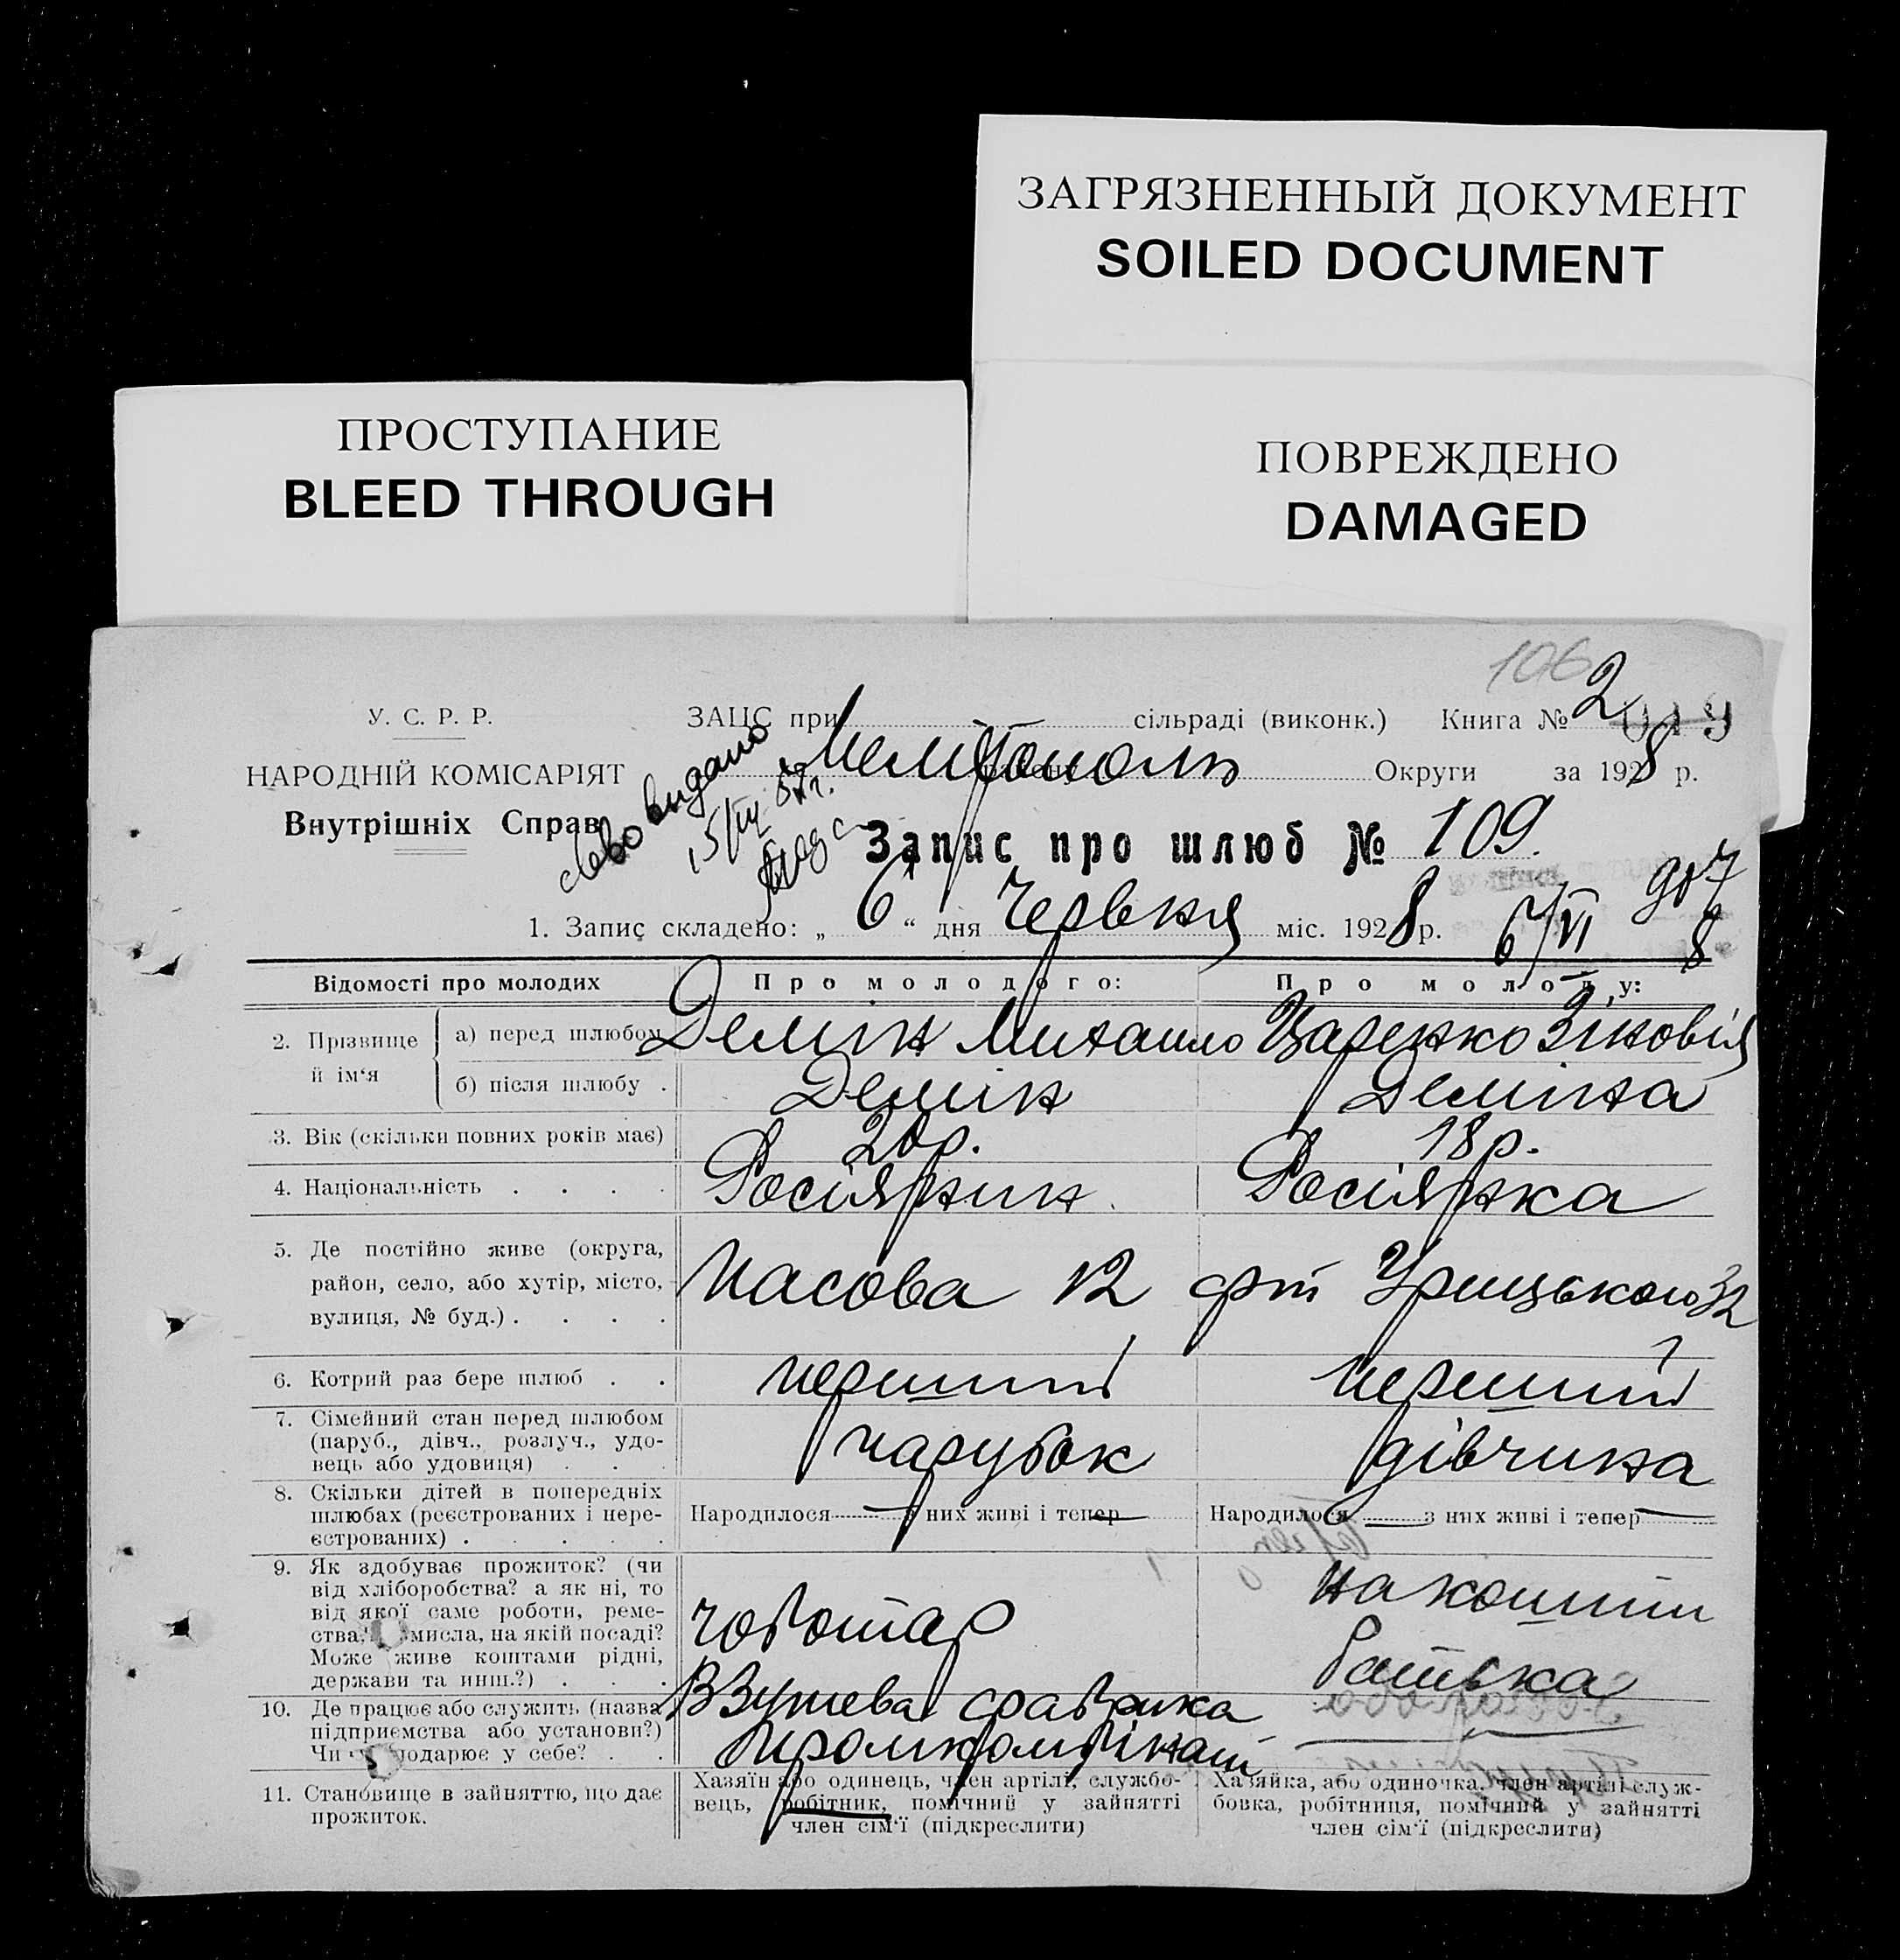 ЗАГРЯЗНЕННЫЙ ДОКУМЕНТ
SOILED DOCUMENT
ПРОСТУПАНИЕ
BLEED THROUGH
ПОВРЕЖДЕНО
DAMAGED
106
У. С. Р. Р.
НАРОДНІЙ КОМІСАРІЯТ
Внутрішніх Справ
ЗАЦС при сільраді (виконк.) Книга № 2
Мелітополь Округи за 1928 р.
видано
Запис про шлюб № 109.
1. Запис складено: „ 6 “ дня Червня міс. 1928 р. 6/VI
Відомості про молодих
Про молодого:
Про молоду:
2. Прізвище й ім‘я
а) перед шлюбом Демін Михайло Царенко Зіновія
б) після шлюбу . Демін Деміна
3. Вік (скільки повних років має) 20 р. 18 р.
4. Національність . . . . Росіянин Росіянка
5. Де постійно живе (округа,
район, село, або хутір, місто,
вулиця, № буд.) . . . .
Пасова 12 Урицького 32
6. Котрий раз бере шлюб . . перший перший
7. Сімейний стан перед шлюбом
(паруб., дівч., розлуч., удо-
вець або удовиця) . . .
парубок дівчина
8. Скільки дітей в попередніх
шлюбах (реєстрованих і нере-
єстрованих) . . . . .
Народилося — з них живі і тепер —
Народилося — з них живі і тепер —
9. Як здобуває прожиток? (чи
від хліборобства? а як ні, то
від якої саме роботи, реме-
ства, мисла, на якій посаді?
Може живе коштами рідні,
держави та инш.?) . . .
чоботар
на кошти
батька
10. Де працює або служить (назва
підприємства або установи?)
Чи одарює у себе? . .
Взутева фабрика
Промкомбінат
11. Становище в зайняттю, що дає
прожиток.
Хазяїн або одинець, член артілі, службо-
вець, робітник, помічний у зайнятті
член сім‘ї (підкреслити)
Хазяйка, або одиночка, член артілі служ-
бовка, робітниця, помічний у зайнятті
член сім‘ї (підкреслити)